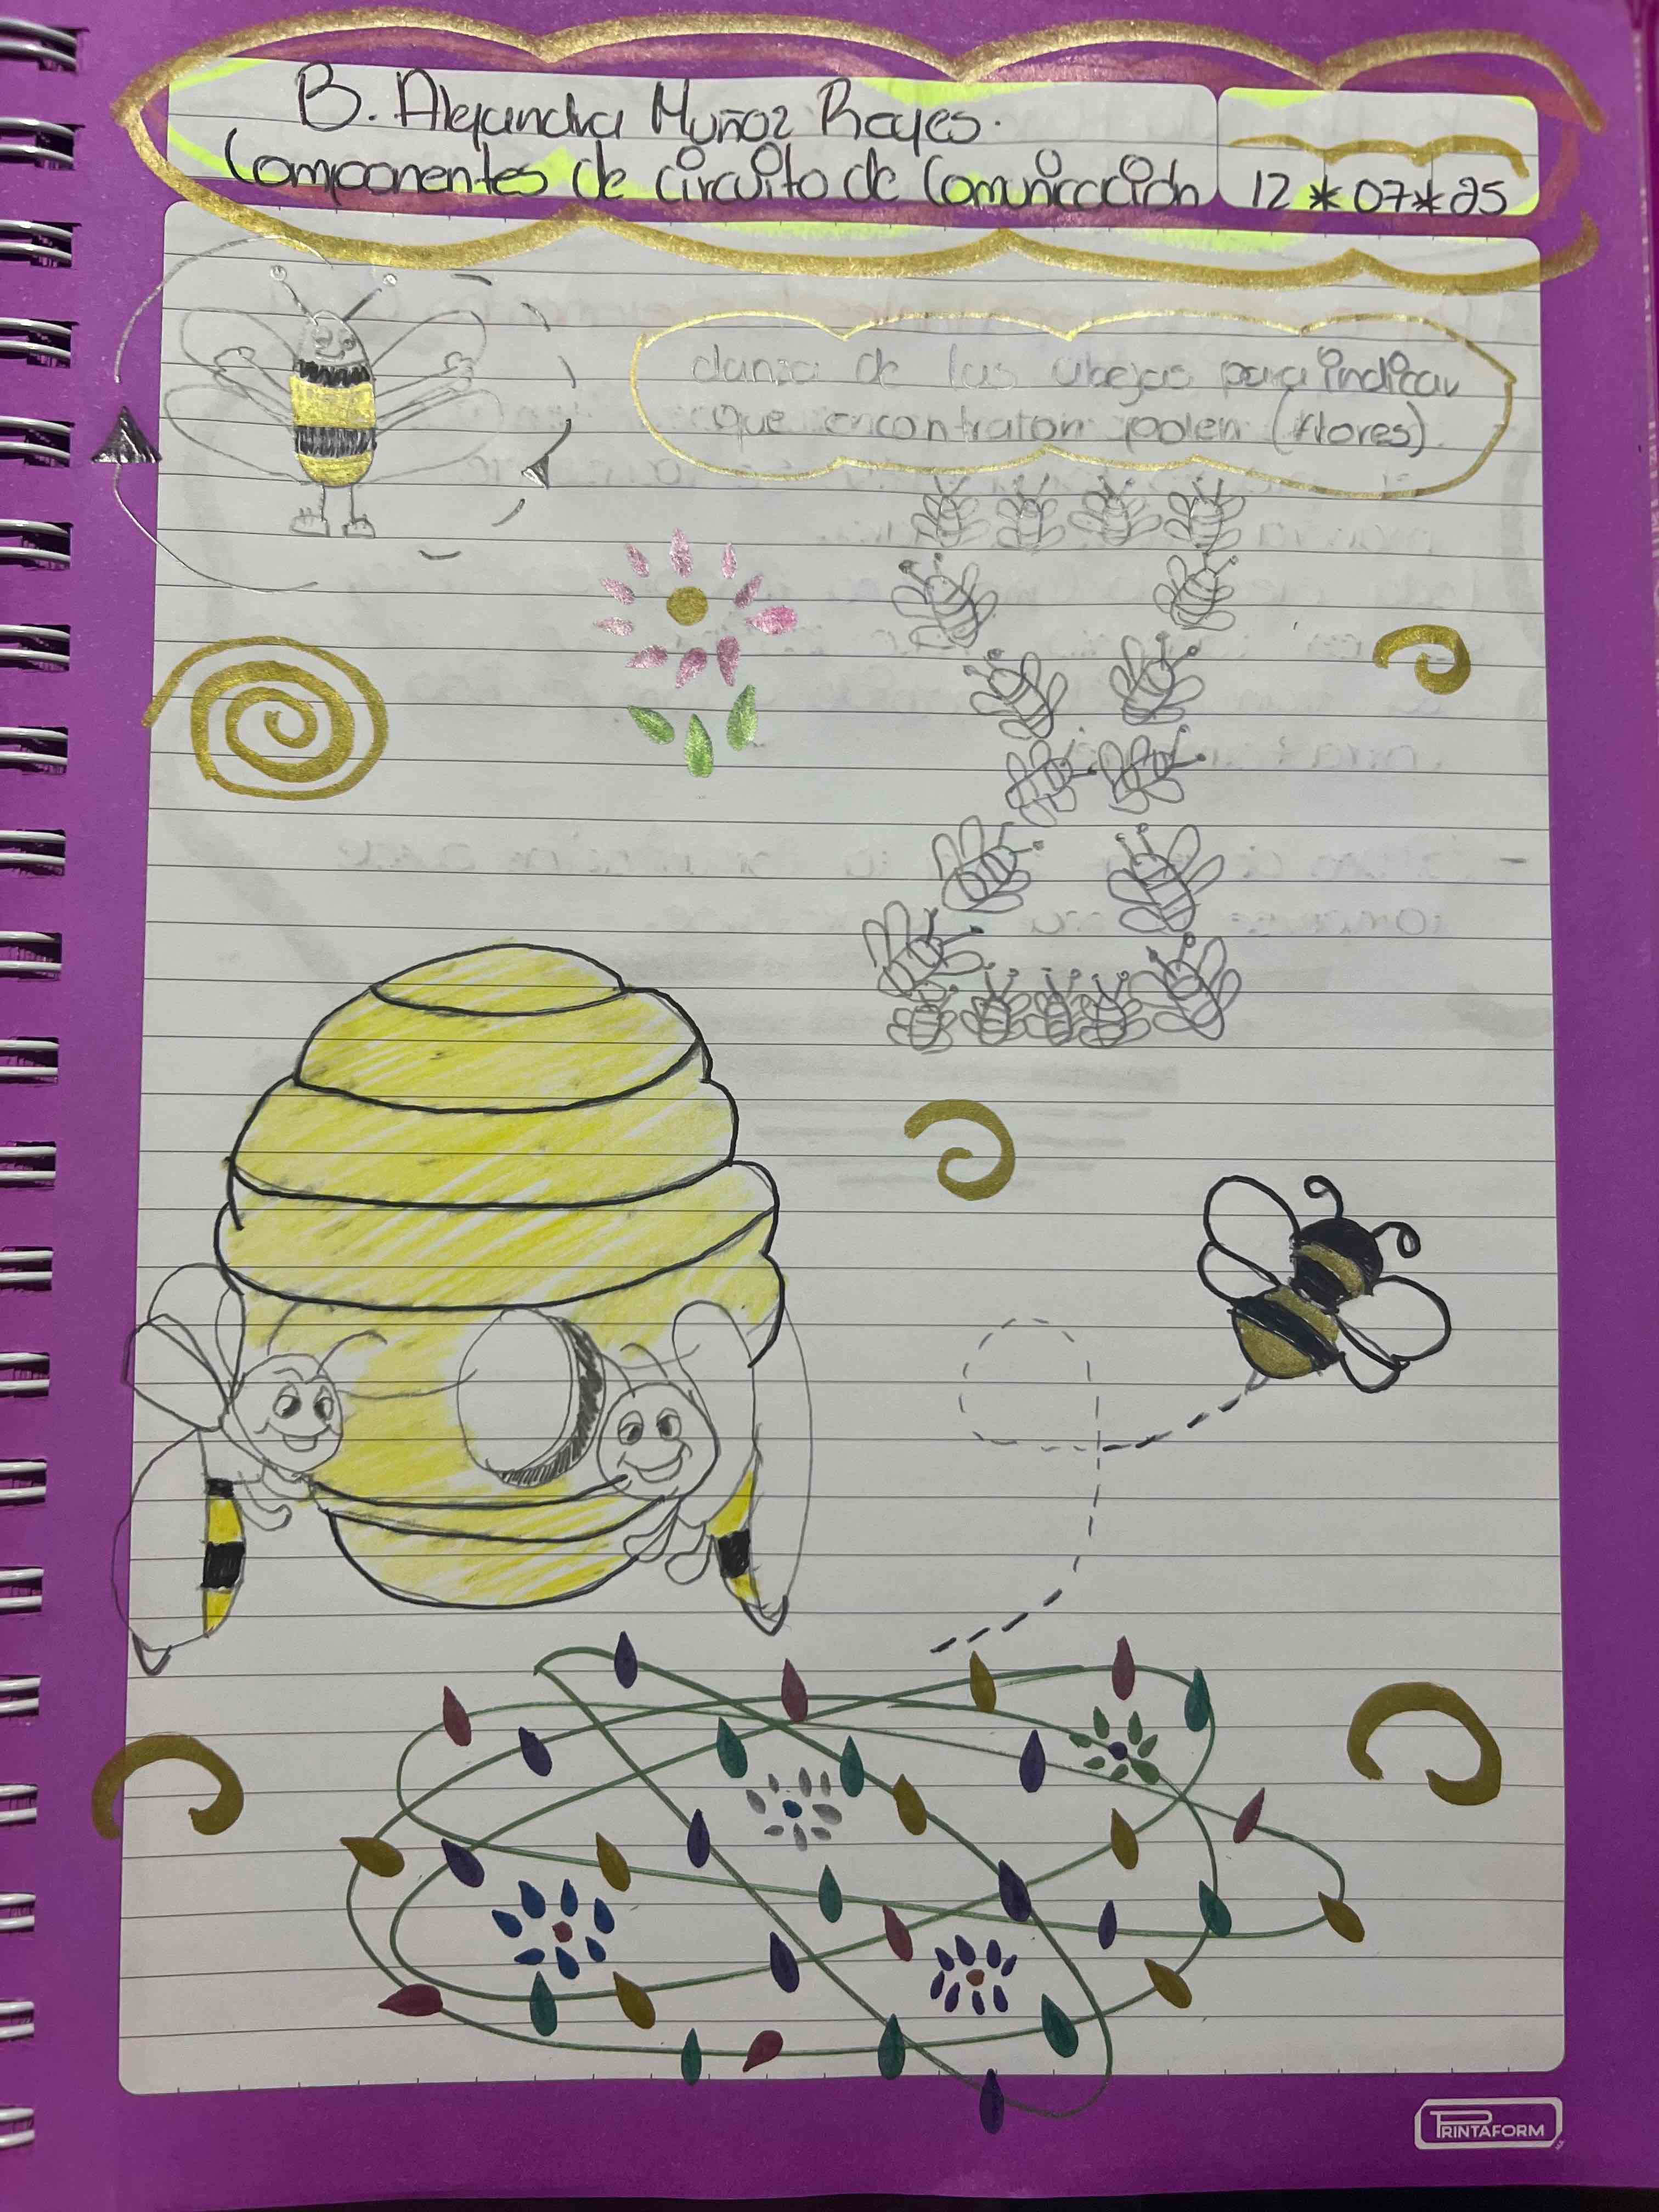 B. Alejandra Muñoz Reyes.
Componentes de circuito de Comunicación
12*07*25
danza de las abejas para indicar
que encontraron polen (flores)
PRINTAFORM